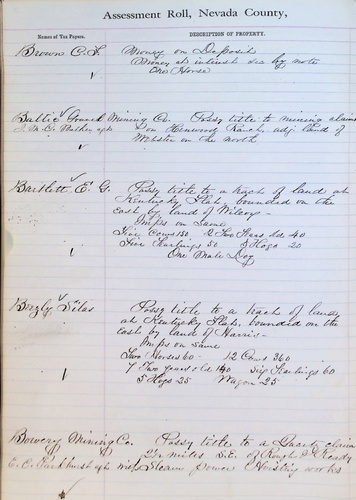 Assessment Roll, Nevada County,
Names of Tax Payers. DESCRIPTION OF PROPERTY.
Brown C. F. Money on Deposit
Money at interest sec by note
One Horse
Baltic Gravel Mining Co. Possy title to mining claim
on Kenwood Ranch, adj land of
Webster on the north
Bartlett E. G. Possy title to a tract of land at
Kentucky Flat, bounded on the
east by land of Wilcox
Imps on same
Five Cows 150 2 Two Years old 40
Five Yearlings 50 5 Hogs 20
One Male Dog
Beezly Silas Possy title to a tract of land
at Kentucky Flat, bounded on the
east by land of Harris
Imps on same
Two Horses 60 12 Cows 360
7 Two years old 140 Six Yearlings 60
5 Hogs 25 Wagon 25
Bowery Mining Co. Possy title to a Quartz claim
2½ miles S.E. of Rough & Ready
E. C. agt Steam power Hoisting works